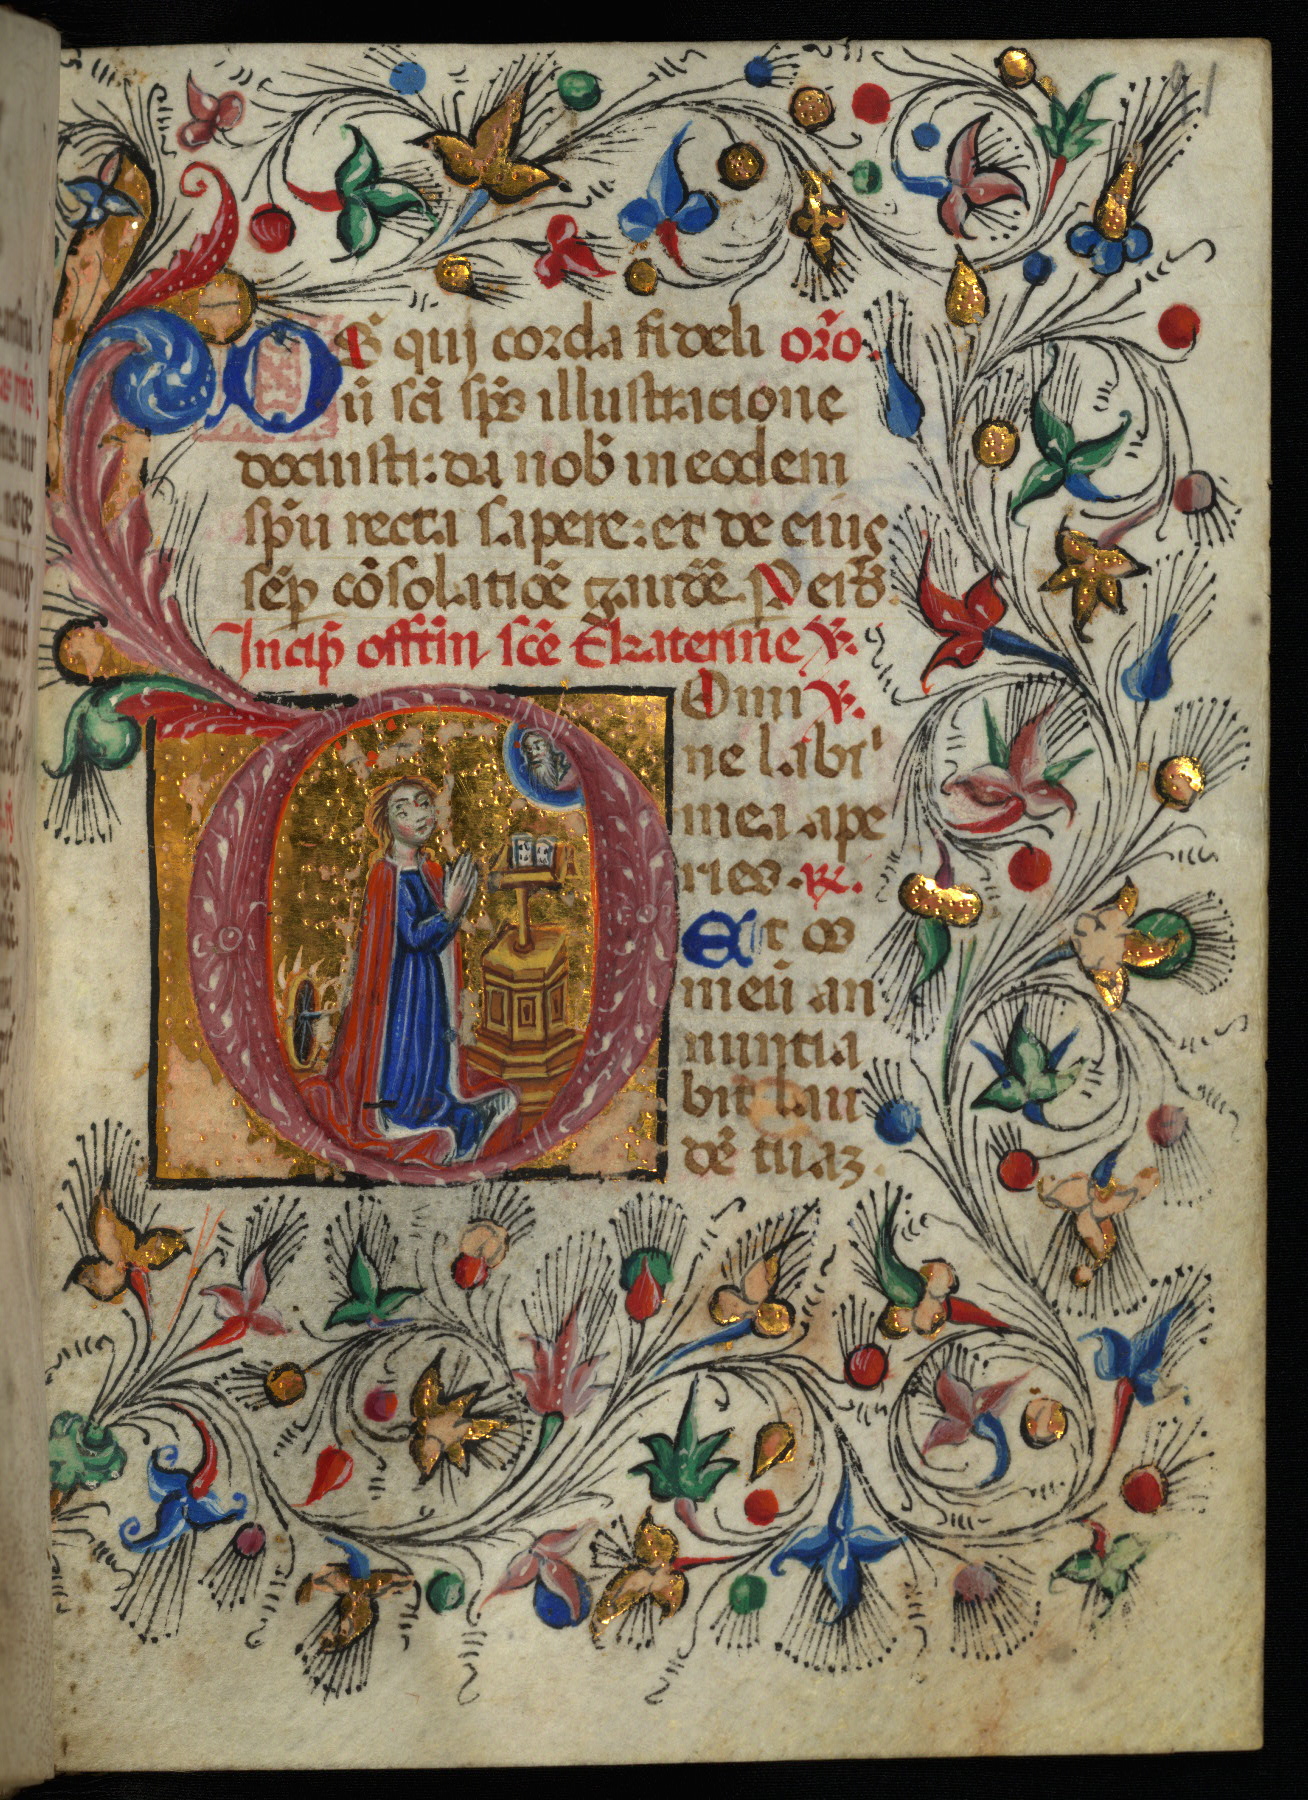 91
DS̄ qui corda fideli oro.
ū sc̄i sp̄s illustracione
docuisti: da nob̄ in eodem
sp̄u recta sapere: et de eius
sēp cōsolatiōē gaudē. Per
Incip̄ offm̄ sc̄e Ekaterine ℣.
Domi ℣.
ne labi'
mea ape
ries. ℟.
Et os
meū an
nuntia
bit lau
dē tuaz.